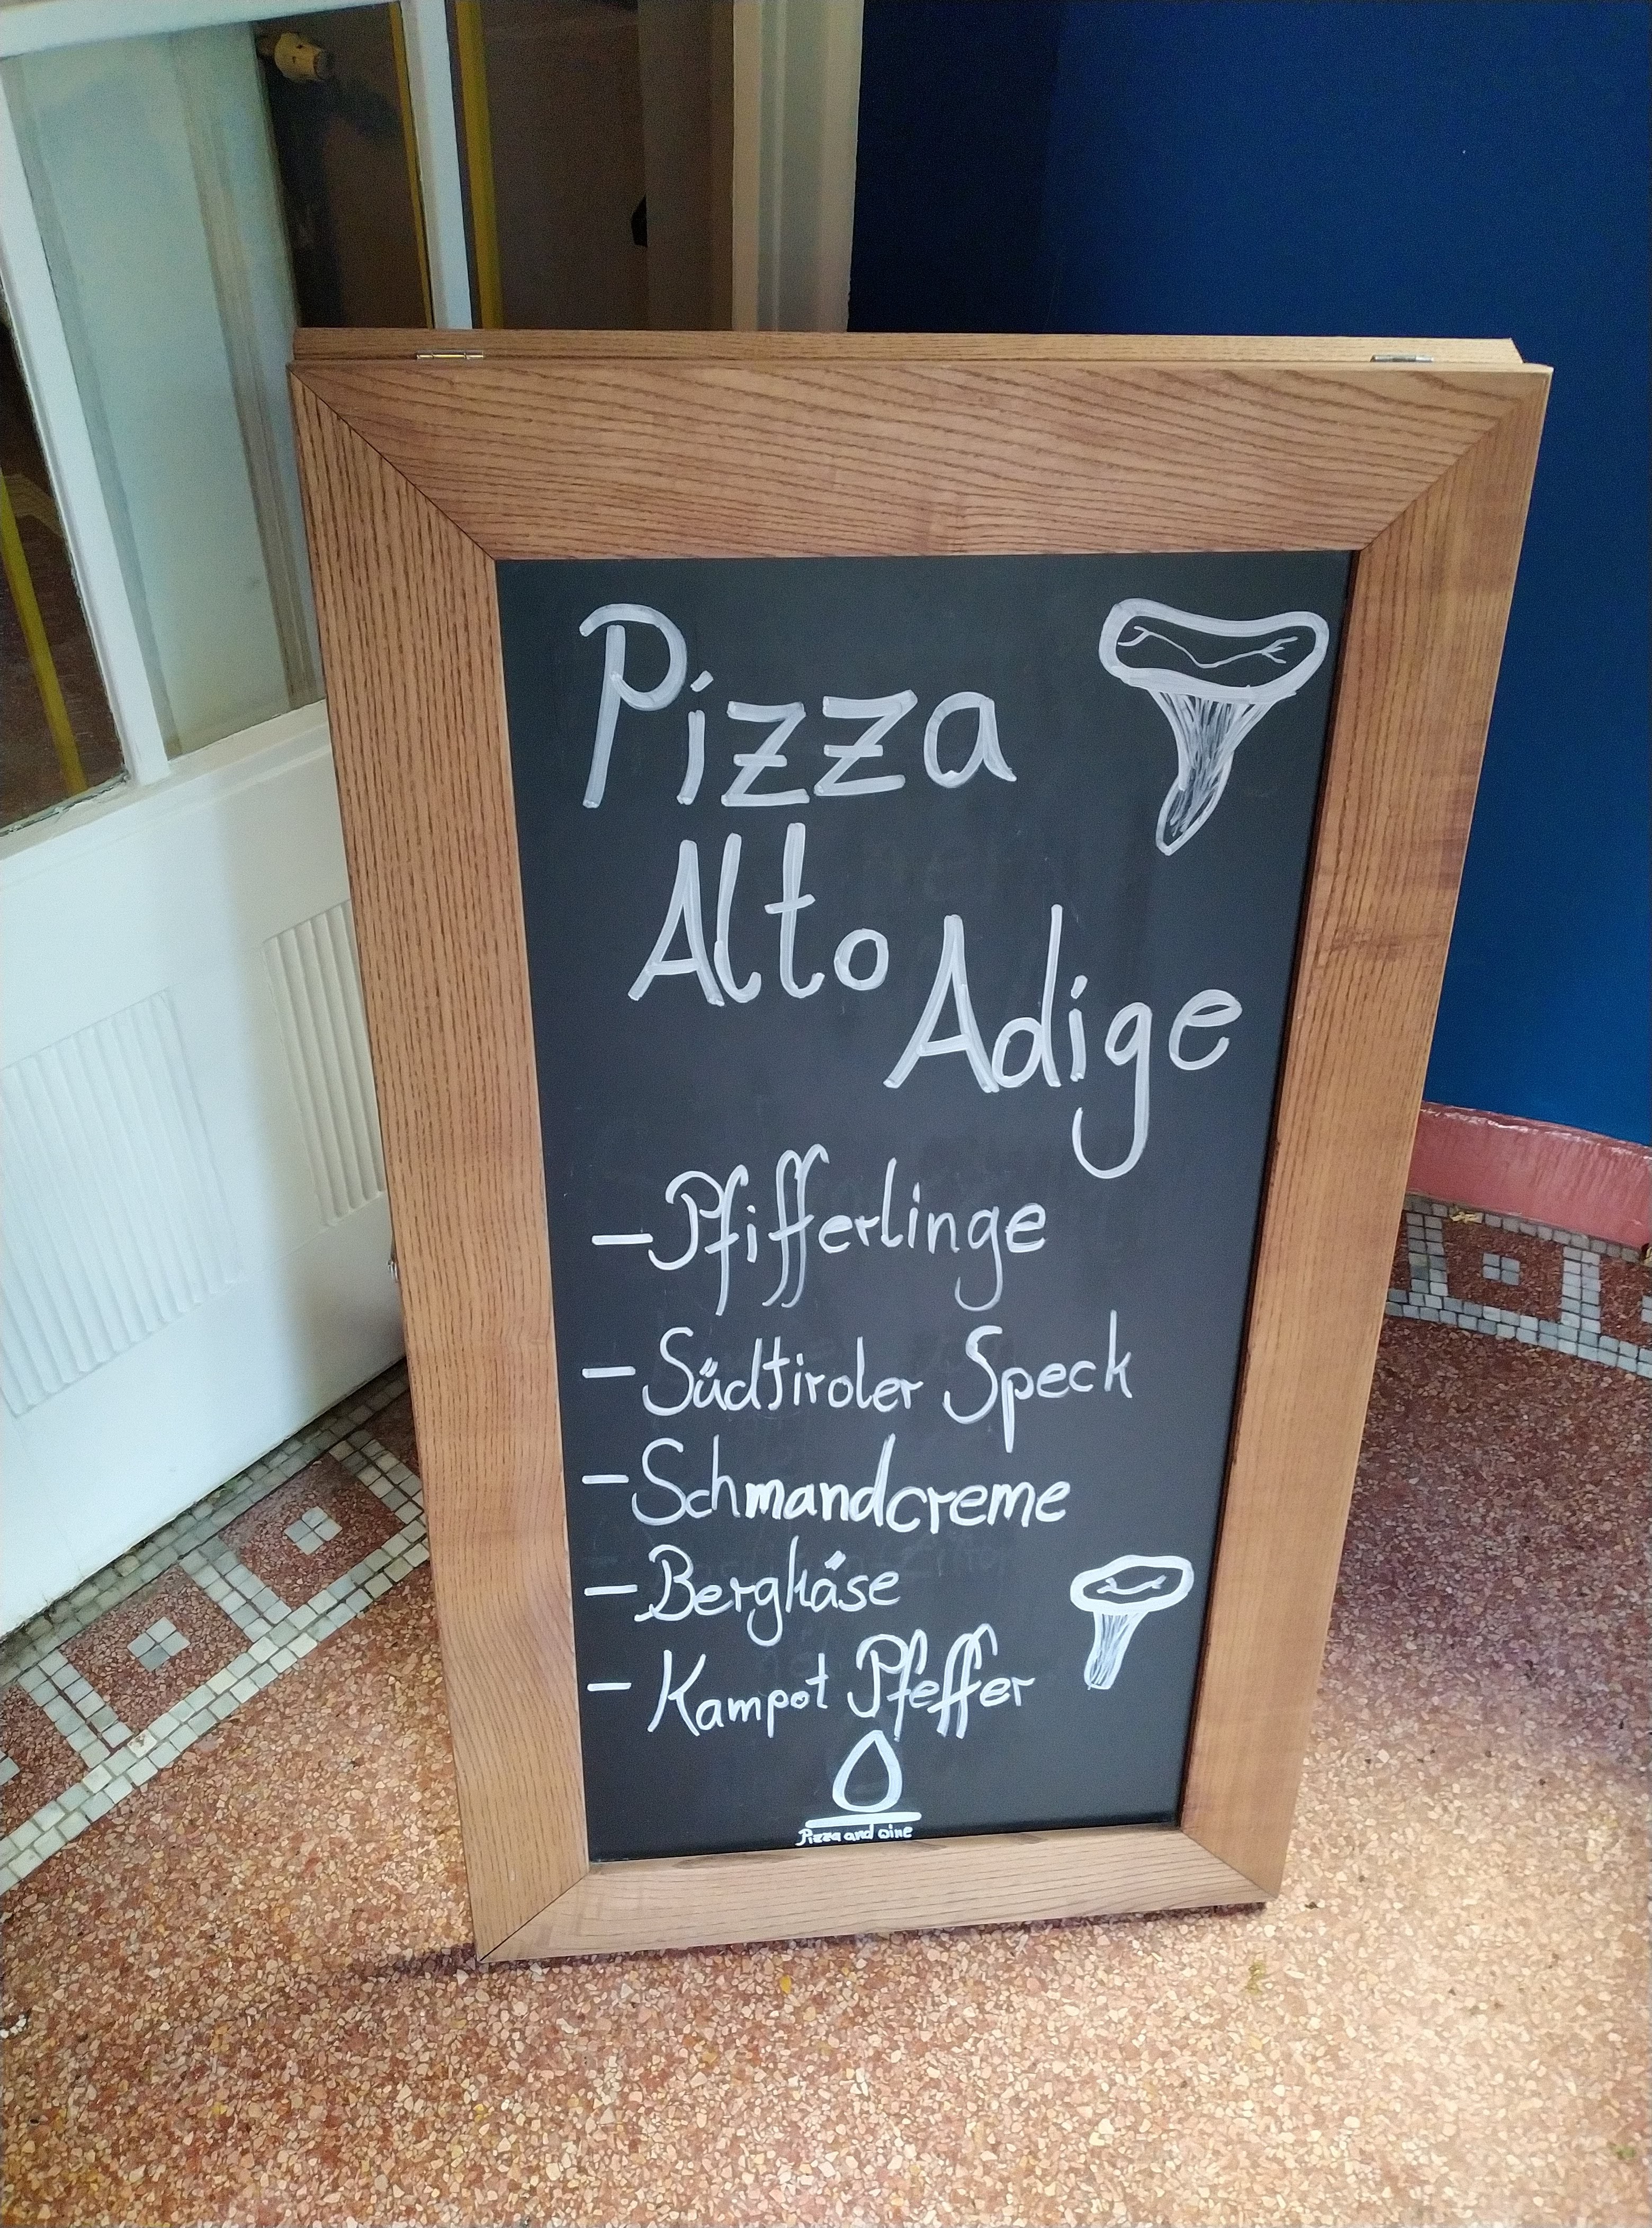 Pizza
Alto
Adige
- Pfifferlinge
- Südtiroler Speck
- Schmandcreme
- Bergkäse
- Kampot Pfeffer
Pizza and